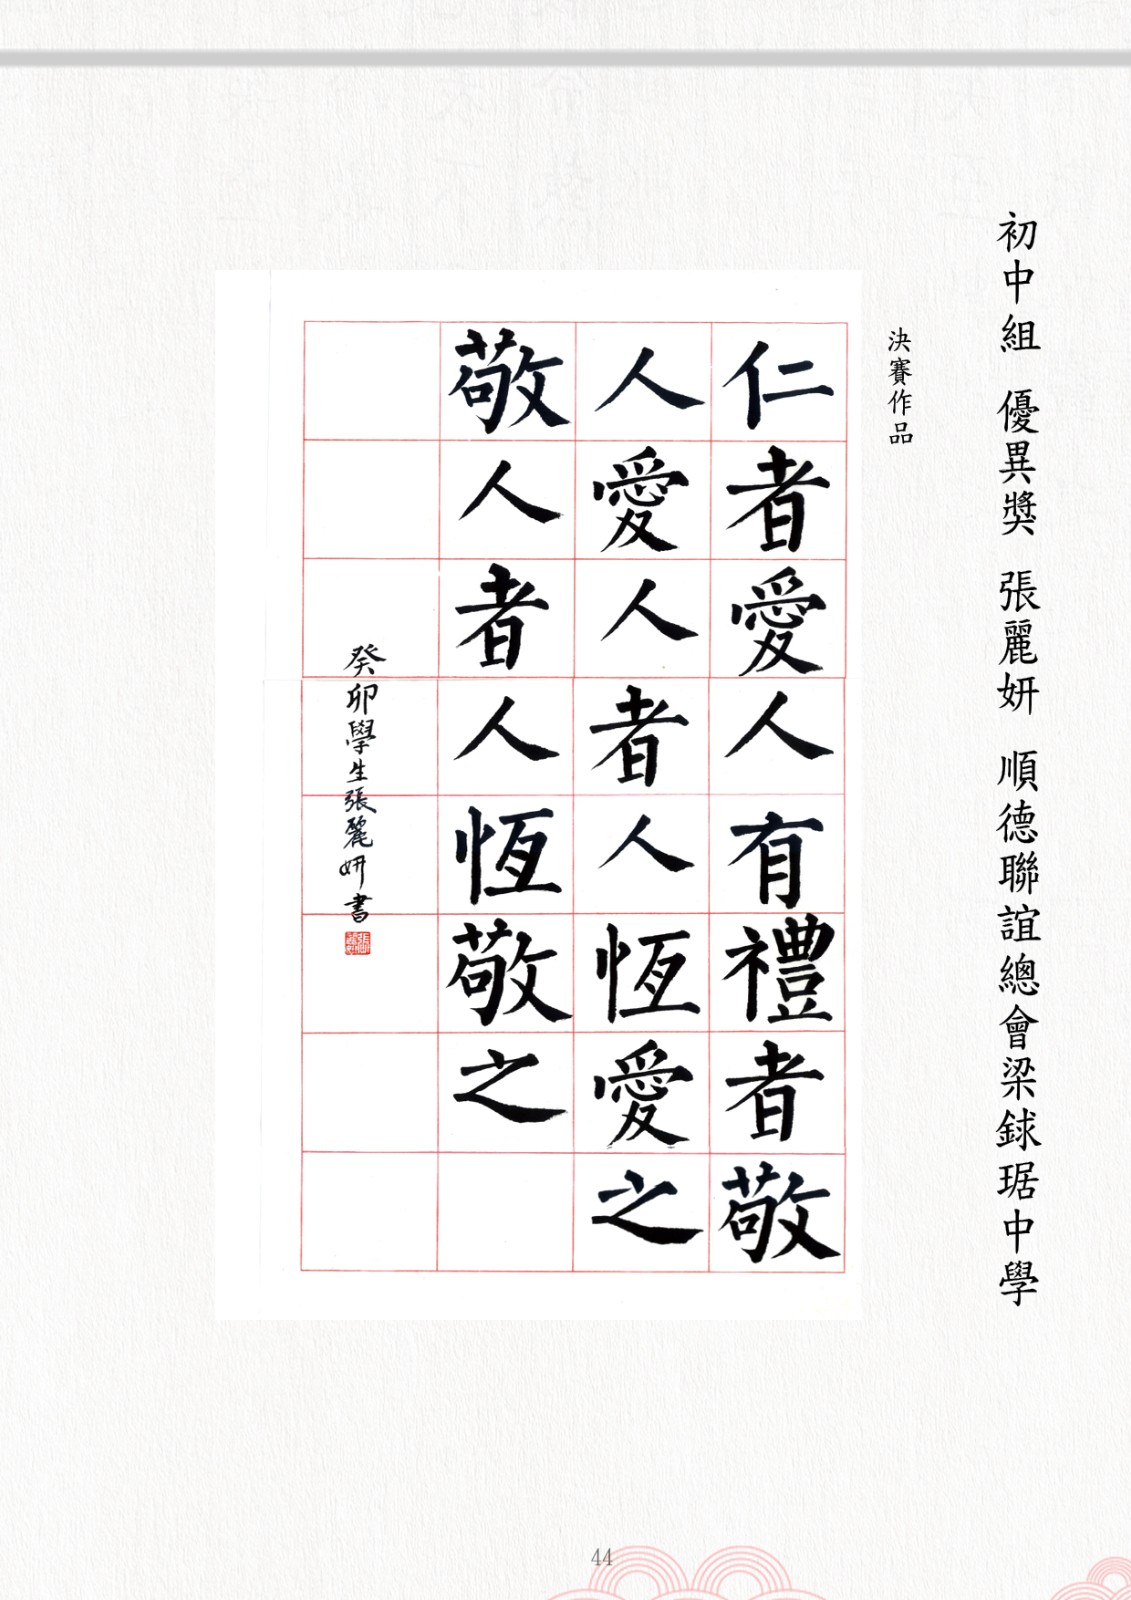 初中組 優異獎 張麗妍 順德聯誼總會梁銶琚中學
決賽作品
仁者愛人有禮者敬
人愛人者人恆愛之
敬人者人恆敬之
癸卯學生張麗妍書
44